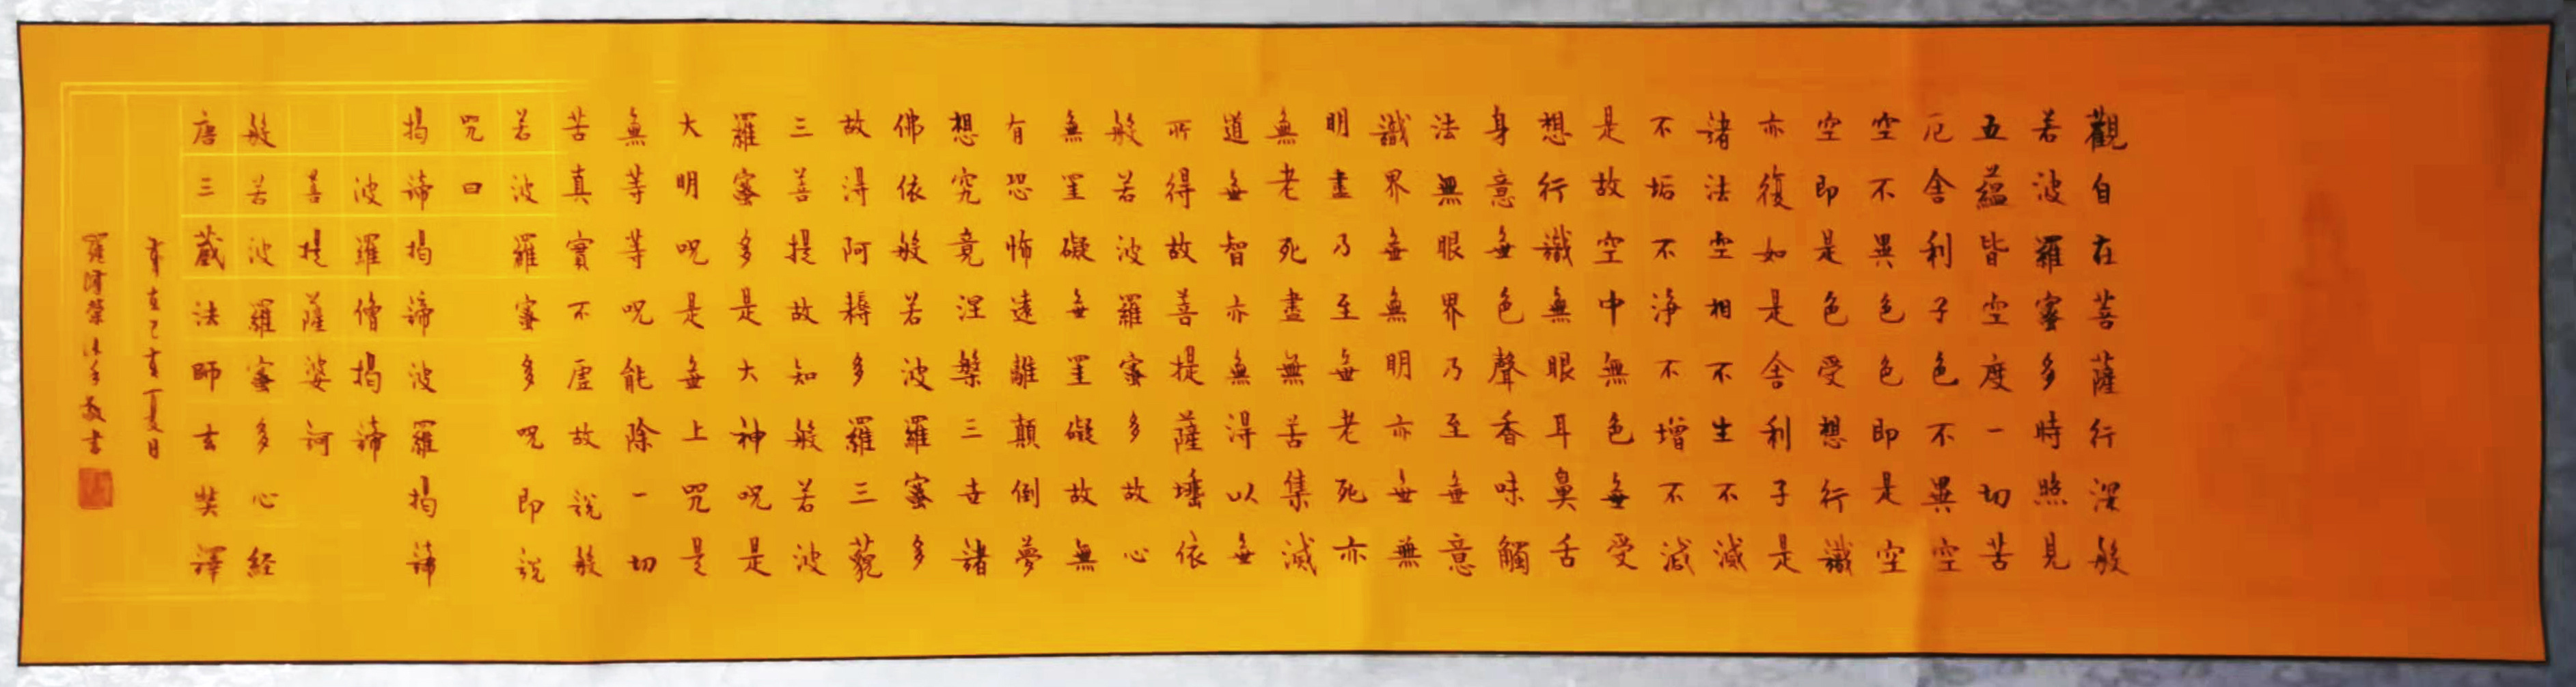 觀自在菩薩行深般
若波羅蜜多時照見
五蘊皆空度一切苦
厄舍利子色不異空
空不異色色即是空
空即是色受想行識
亦復如是舍利子是
諸法空相不生不滅
不垢不淨不增不減
是故空中無色無受
想行識無眼耳鼻舌
身意無色聲香味觸
法無眼界乃至無意
識界無無明亦無無
明盡乃至無老死亦
無老死盡無苦集滅
道無智亦無得以無
所得故菩提薩埵依
般若波羅蜜多故心
無罣礙無罣礙故無
有恐怖遠離顛倒夢
想究竟涅槃三世諸
佛依般若波羅蜜多
故得阿耨多羅三藐
三菩提故知般若波
羅蜜多是大神呪是
大明呪是無上咒是
無等等呪能除一切
苦真實不虛故說般
若波羅蜜多呪即說
咒曰
揭諦揭諦波羅揭諦
波羅僧揭諦
菩提薩婆訶
般若波羅蜜多心経
唐三藏法師玄奘譯
己亥夏日
羅榮沐手敬書